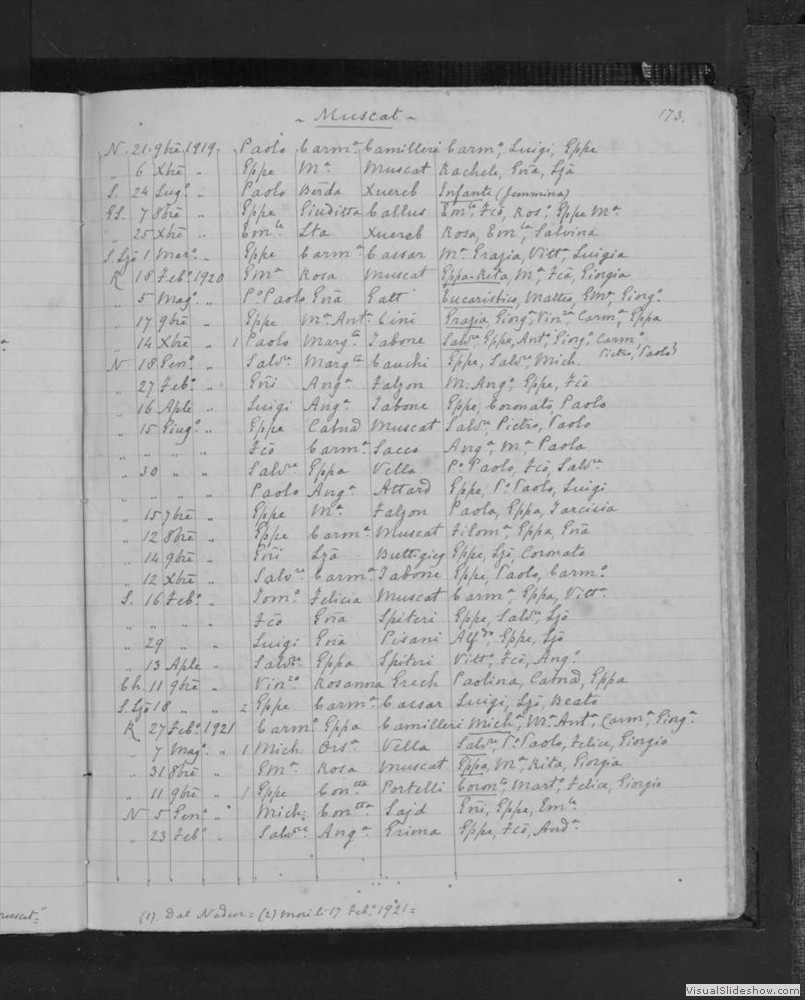 - Muscat -
173.
N. 21. 9bre 1919. Paolo Carm.a Camilleri Carm.o, Luigi, Eppe
" 6 Xbre " Eppe M.a Muscat Rachele, Gna, Ljà
S. 24 Lug.o " Paolo Berda Xuereb Infante (femmina)
GS. 7 8bre " Eppe Giuditta Callus Em.le, Fcō, Ros.o, Eppe M.a
" 25 Xbre " Em.le Lta Xuereb Rosa, Em.la, Salvina
S.Ljò 1 Mar.o " Eppe Carm.a Cassar M.a Grazia, Vitt.a, Luigia
R 18 Feb.o 1920 Em.a Rosa Muscat Eppa-Rita, M.a, Fcā, Giorgia
" 5 Mag.o " P.o Paolo Gnā Gatt Eucaristico, Matteo, Em.a, Giorg.o
" 17 9bre " Eppe M.a Ant.a Cini Grazia, Giorg.a, Vin.za, Carm.a, Eppa
" 14 Xbre " 1 Paolo Marg.ta Tabone Salv.re, Eppe, Ant.o, Giorg.o, Carm.o,
Pietro, Paolo}
N 18 Gen.o " Salv.re Marg.ta Cauchi Eppe, Salv.re, Mich.
" 27 Feb.o " Gñi Ang.a Falzon M. Ang.o, Eppe, Fcō
" 16 Aple " Luigi Ang.a Tabone Eppe, Coronato, Paolo
" 15 Giug.o " Eppe Catnā Muscat Salv.re, Pietro, Paolo
" " " " Fcō Carm.a Sacco Ang.a, M.a, Paola
" 30 " " Salv.re Eppa Vella P.o Paolo, Fcō, Salv.re
" " " " Paolo Ang.a Attard Eppe, P.o Paolo, Luigi
" 15 7bre " Eppe M.a Falzon Paola, Eppa, Tarcisia
" 12 8bre " Eppe Carm.a Muscat Filom.a, Eppa, Gnā
" 14 9bre " Gñi Ljā Buttigieg Eppe, Ljō, Coronato
" 12 Xbre " Salv.re Carm.a Tabone Eppe, Paolo, Carm.o
S. 16 Feb.o " Tom.o Felicia Muscat Carm.a, Eppa, Vitt.a
" " " " Fcō Gnā Spiteri Eppe, Salv.re, Ljō
" 29 " " Luigi Gnā Pisani Alf.do, Eppe, Ljō
" 13 Aple " Salv.re Eppa Spiteri Vitt.o, Fcō, Ang.o
Ch. 11 9bre " Vin.zo Rosanna Grech Paolina, Catnā, Eppa
S.Ljò 18 " " 2 Eppe Carm.a Cassar Luigi, Ljō, Beato
R 27 Feb.o 1921 Carm.o Eppa Camilleri Mich.a, M.a Ant.a, Carm.a, Giorg.a
" 7 Mag.o " 1 Mich Ors.a Vella Salv.re, P.o Paolo, Felice, Giorgio
" 31 8bre " Em.a Rosa Muscat Eppa, M.a Rita, Giorgia
" 11 9bre " 1 Eppe Con.tta Portelli Coron.to, Mart.o, Felice, Giorgio
N 5 Gen.o " Mich. Con.tta Sajd Gñi, Eppe, Em.le
" 23 Feb.o " Salv.re Ang.a Grima Eppe, Fcō, And.a
(1). Dal Nadur = (2) mori li 17 Feb.o 1921 =
muscat =
VisualSlideshow.com